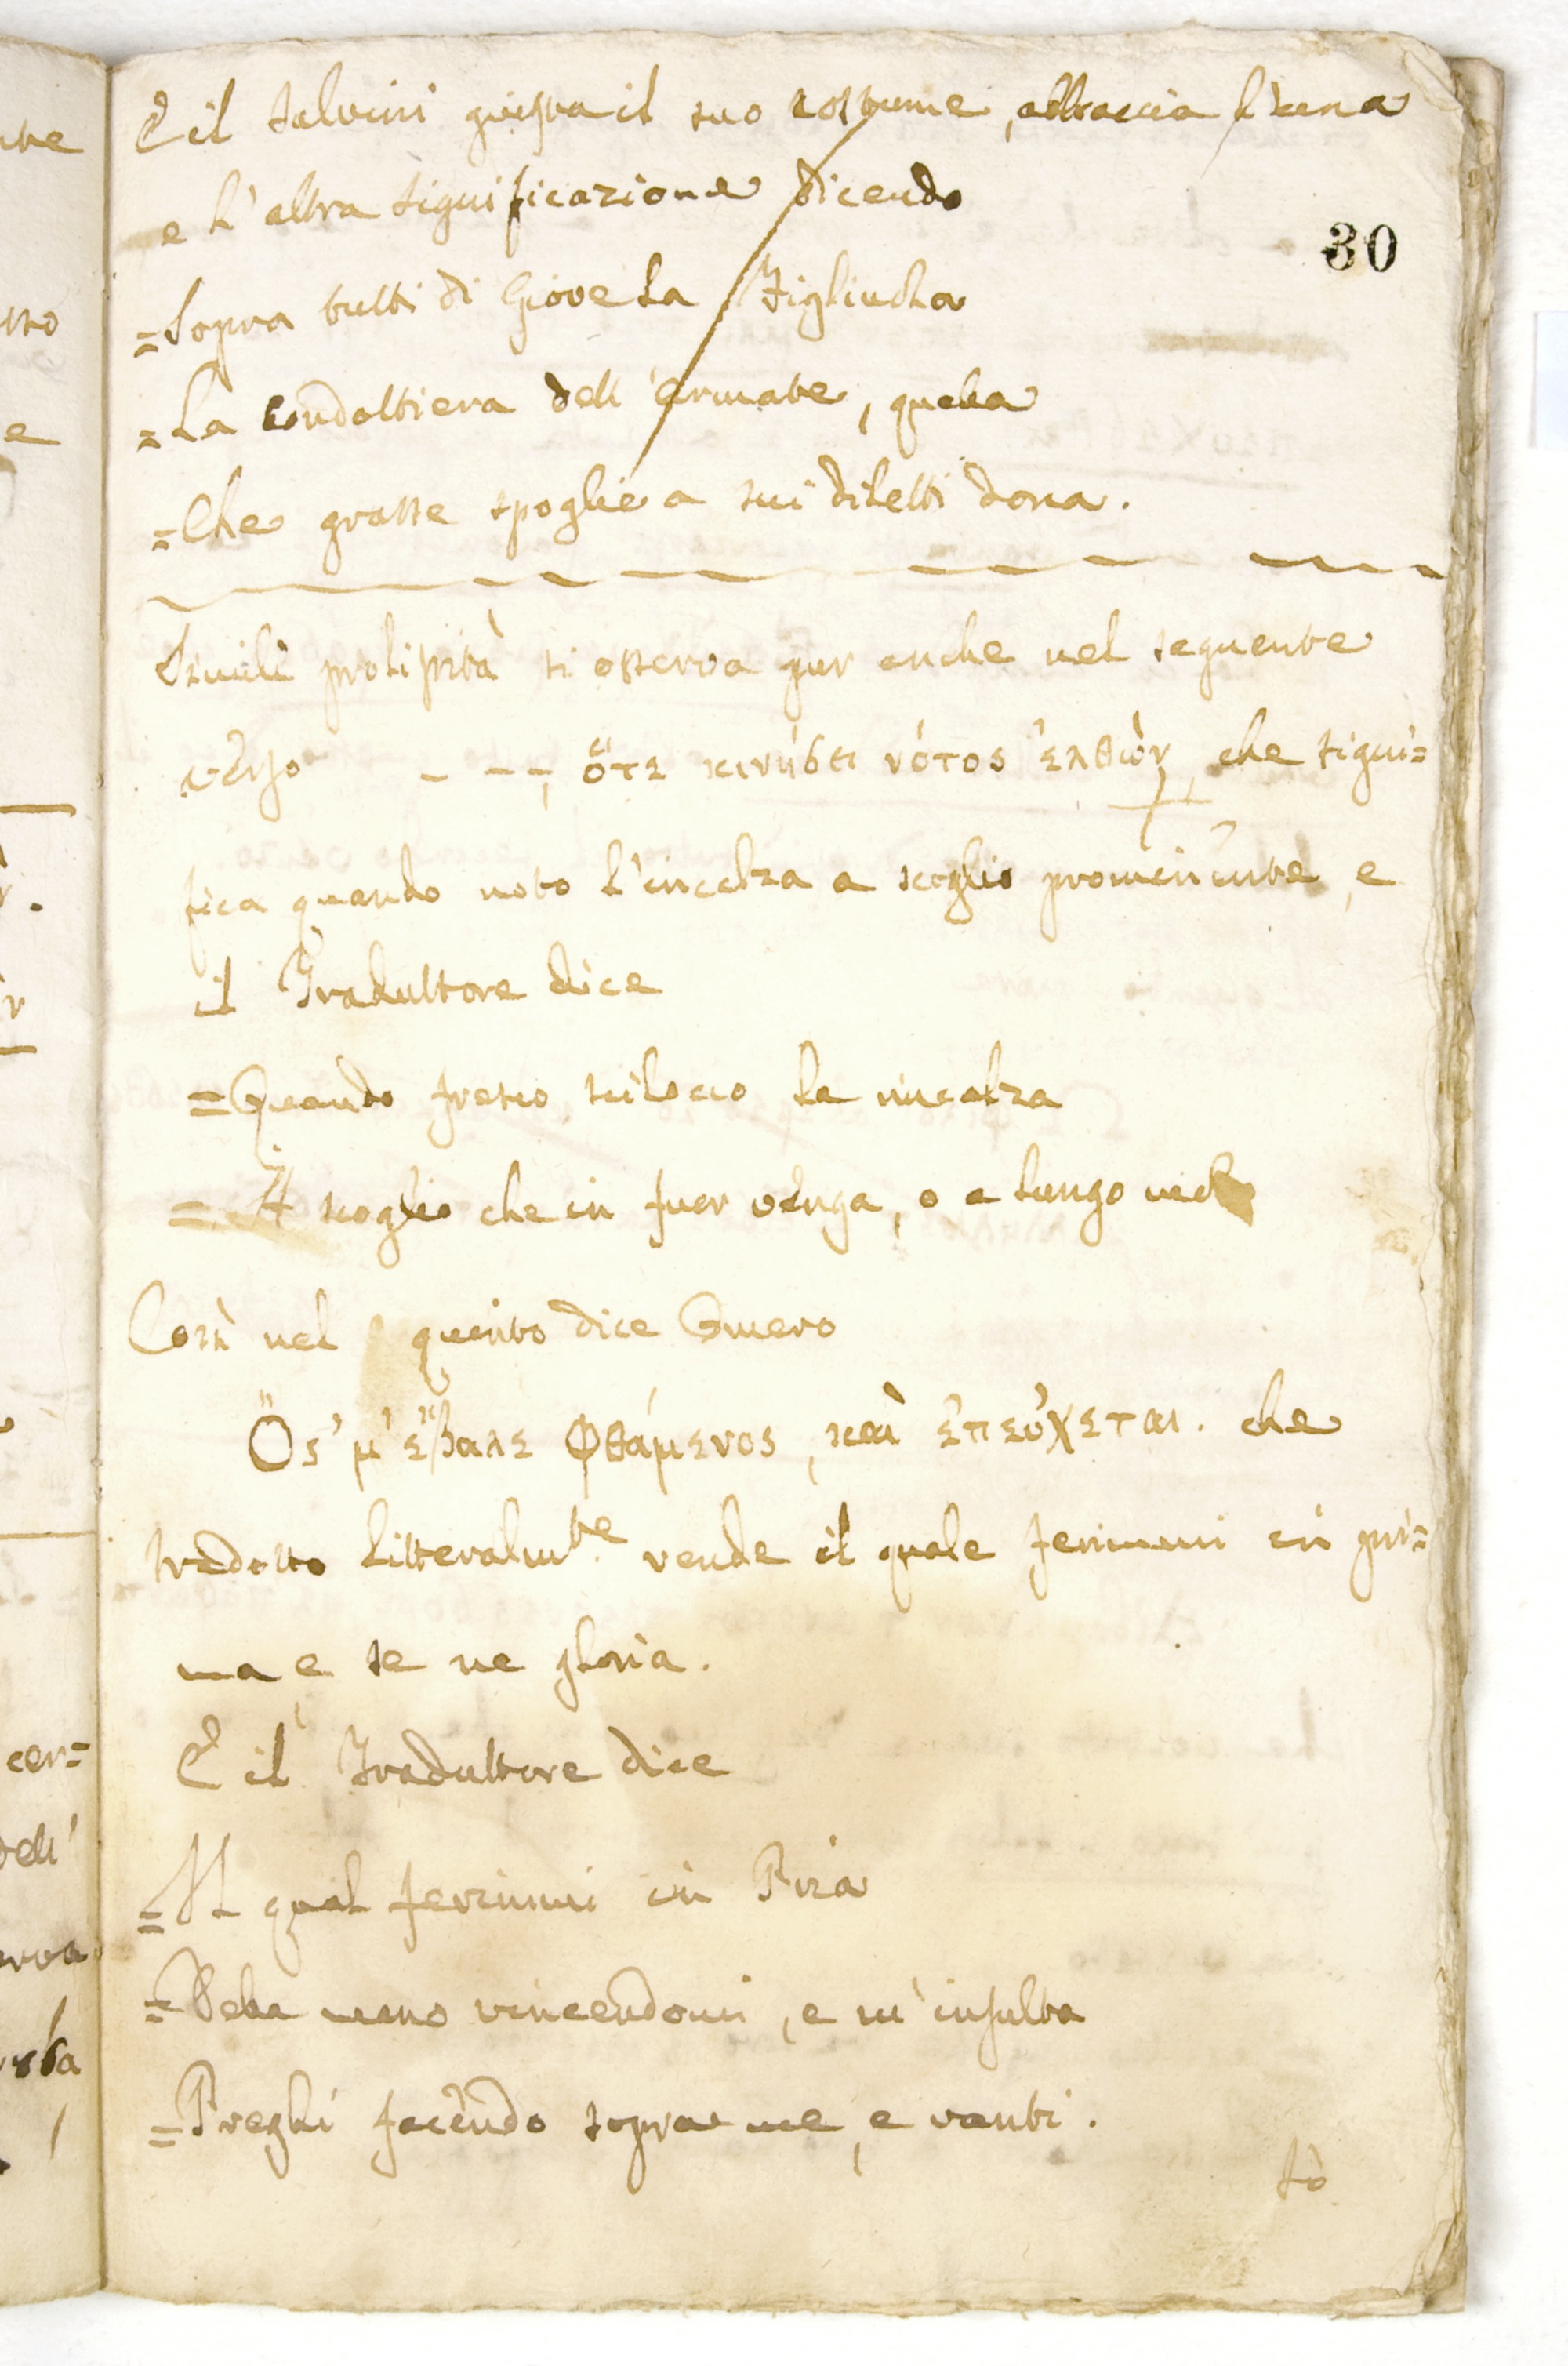 E il Salvini giusta il suo costume, abbraccia l'una
e l'altra significazione dicendo
30
=Sopra tutti di Giove la Figliuola
=La condottiera dell'armate, quella
=Che grasse spoglie a sui diletti dona.
Simili prolissità si osserva pur anche nel seguente
verso - - -, ὅτε κινήσει νότος ἐλθὼν, che signi=
fica quando noto l'incalza a scoglio prominente, e
il Traduttore dice
=Quando fresco scilocco la rincalza
=A scoglio che in fuor venga, o a lungo
Così nel quinto dice Omero
Ὅς μ' ἔβαλε φθάμενος, καὶ ἐπεύχεται. che
tradotto litteralmte. rende il quale ferimmi in pri=
ma, e se ne gloria.
E il Traduttore dice
=Il qual ferimmi in Pria
=Della mano vincendomi, e m'insulta
=Preghi facendo sopra me, e vanti.
Sò
cer=
dell'